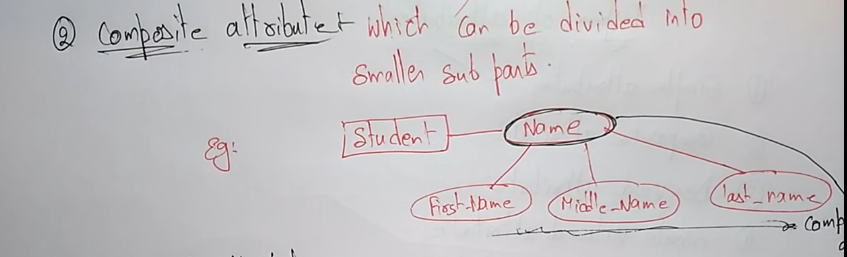 ② Composite attribute:- which can be divided into
smaller sub parts.
Eg:
Student
Name
First-Name
Middle-Name
last-name